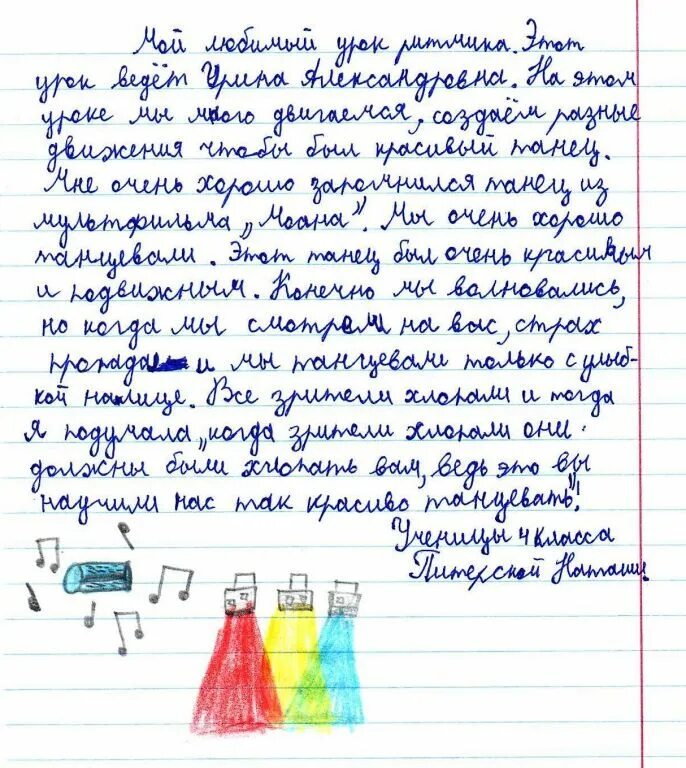 Мой любимый урок ритмика. Этот
урок ведёт Ирина Александровна. На этом
уроке мы много двигаемся, создаём разные
движения чтобы был красивый танец.
Мне очень хорошо запомнился танец из
мультфильма „Моана”. Мы очень хорошо
танцевали. Этот танец был очень красивым
и подвижным. Конечно мы волновались,
но когда мы смотрели на вас, страх
пропадал и мы танцевали только с улыб-
кой на лице. Все зрители хлопали и тогда
я подумала „когда зрители хлопали они
должны были хлопать вам, ведь это вы
научили нас так красиво танцевать”!
Ученицы 4 класса
Питерской Наташи.